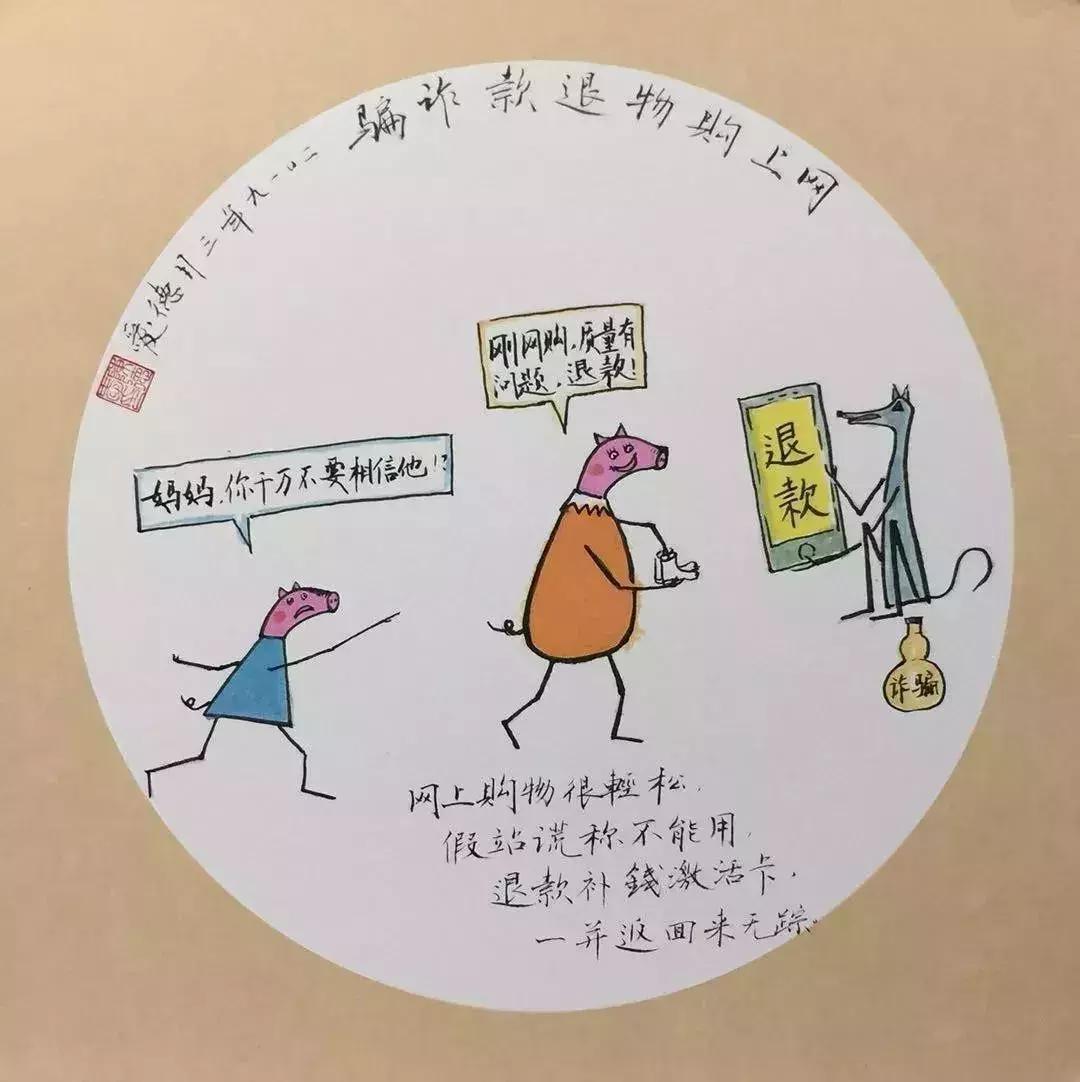 网上购物退款诈骗
二〇一九年三月德爱
刚网购,质量有
问题,退款!
妈妈,你千万不要相信他!
退
款
诈骗
网上购物很輕松,
假站谎称不能用,
退款补錢激活卡,
一并返回来无踪。